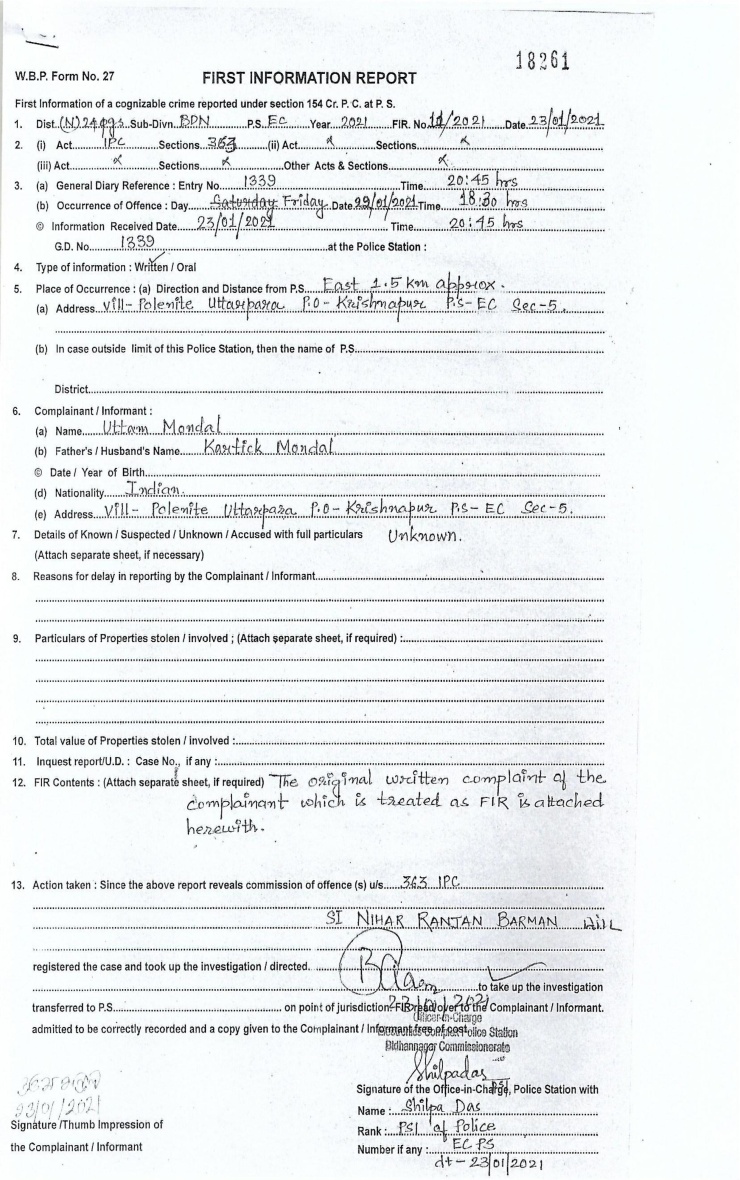 18261
W.B.P. Form No. 27 FIRST INFORMATION REPORT
First Information of a cognizable crime reported under section 154 Cr. P. C. at P. S.
1. Dist. (N) 24 pgs Sub-Divn. BDN P.S. EC Year 2021 FIR. No. 11/2021 Date 23/01/2021
2. (i) Act IPC Sections 363 (ii) Act x Sections x
(iii) Act x Sections x Other Acts & Sections x
3. (a) General Diary Reference : Entry No. 1339 Time 20:45 hrs
(b) Occurrence of Offence : Day Saturday Friday Date 29/01/2021 Time 18:30 hrs
© Information Received Date 23/01/2021 Time 20:45 hrs
G.D. No. 1339 at the Police Station :
4. Type of information : Written / Oral
5. Place of Occurrence : (a) Direction and Distance from P.S. East 1.5 km approx.
(a) Address Vill- Polenite Uttarpara P.O- Krishnapur P.S- EC Sec-5.
(b) In case outside limit of this Police Station, then the name of P.S.
District
6. Complainant / Informant :
(a) Name Uttam Mondal
(b) Father's / Husband's Name Kartick Mondal
© Date / Year of Birth
(d) Nationality Indian.
(e) Address Vill- Polenite Uttarpara P.O- Krishnapur P.S- EC Sec-5.
7. Details of Known / Suspected / Unknown / Accused with full particulars Unknown.
(Attach separate sheet, if necessary)
8. Reasons for delay in reporting by the Complainant / Informant
9. Particulars of Properties stolen / involved ; (Attach separate sheet, if required) :
10. Total value of Properties stolen / involved :
11. Inquest report/U.D. : Case No., if any :
12. FIR Contents : (Attach separate sheet, if required) The original written complaint of the
complainant which is treated as FIR is attached
herewith.
13. Action taken : Since the above report reveals commission of offence (s) u/s 363 IPC
SI NIHAR RANJAN BARMAN
registered the case and took up the investigation / directed.
to take up the investigation
transferred to P.S. on point of jurisdiction. FIR read over to the Complainant / Informant.
Officer-in-Charge
admitted to be correctly recorded and a copy given to the Complainant / Informant free of cost Police Station
Bidhannagar Commissionerate
Shilpa das
Signature of the Office-in-Charge, Police Station with
23/01/2021
Name : Shilpa Das
Signature /Thumb Impression of
Rank : PSI of Police
the Complainant / Informant
Number if any : EC PS
dt - 23/01/2021